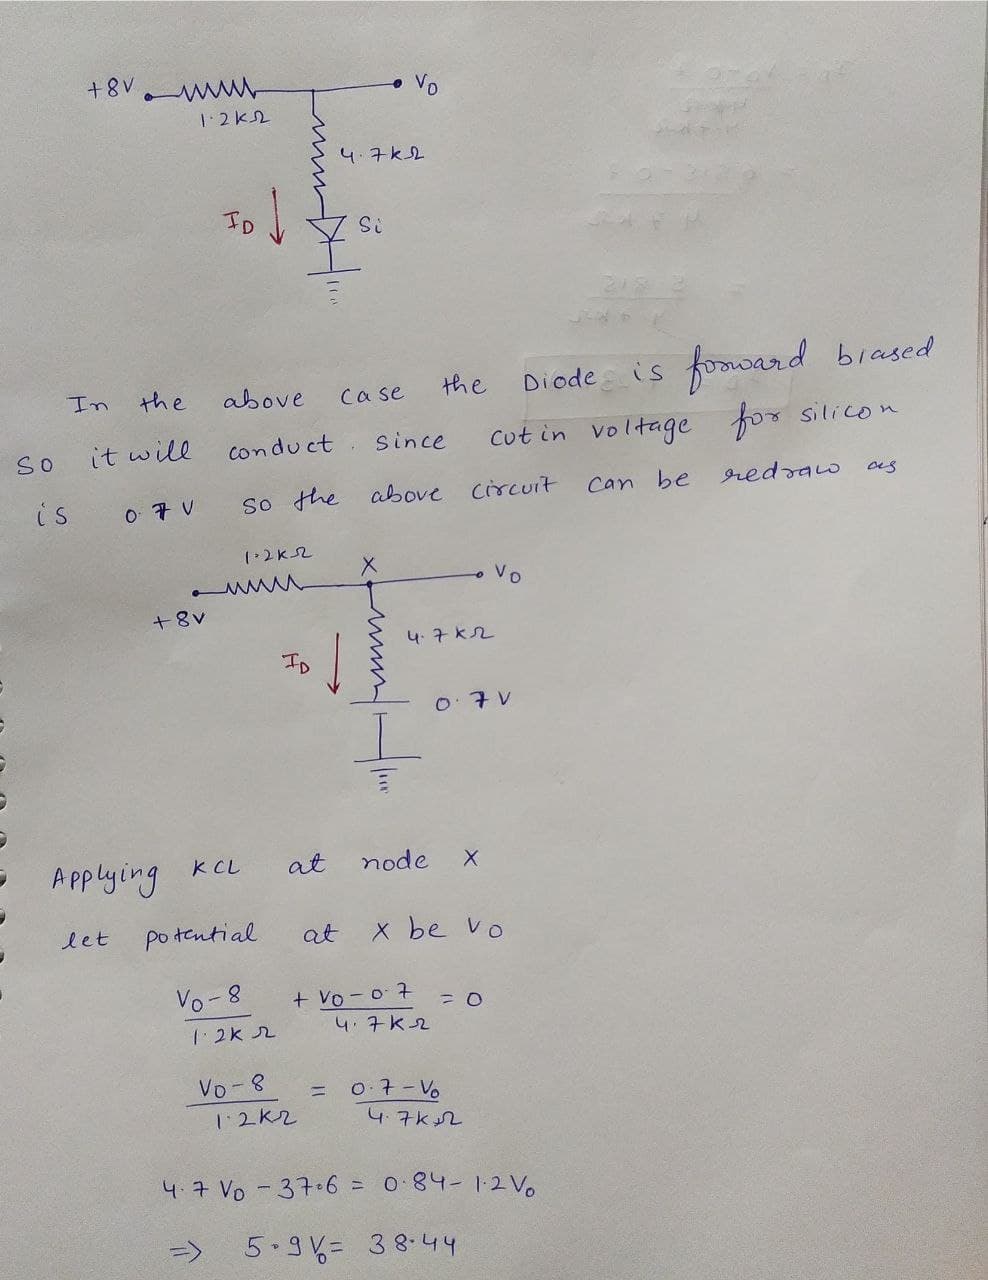 +8V
1.2kΩ
V₀
4.7kΩ
I_D
Si
In the above case the Diode is forward biased
so it will conduct. since cut in voltage for silicon
is 0.7V so the above circuit can be redraw as
1.2kΩ
X
V₀
+8V
4.7kΩ
I_D
0.7V
Applying KCL at node X
let potential at X be V₀
V₀-8 + V₀-0.7 = 0
1.2kΩ 4.7kΩ
V₀-8 = 0.7-V₀
1.2kΩ 4.7kΩ
4.7V₀ - 37.6 = 0.84 - 1.2V₀
=> 5.9V₀ = 38.44